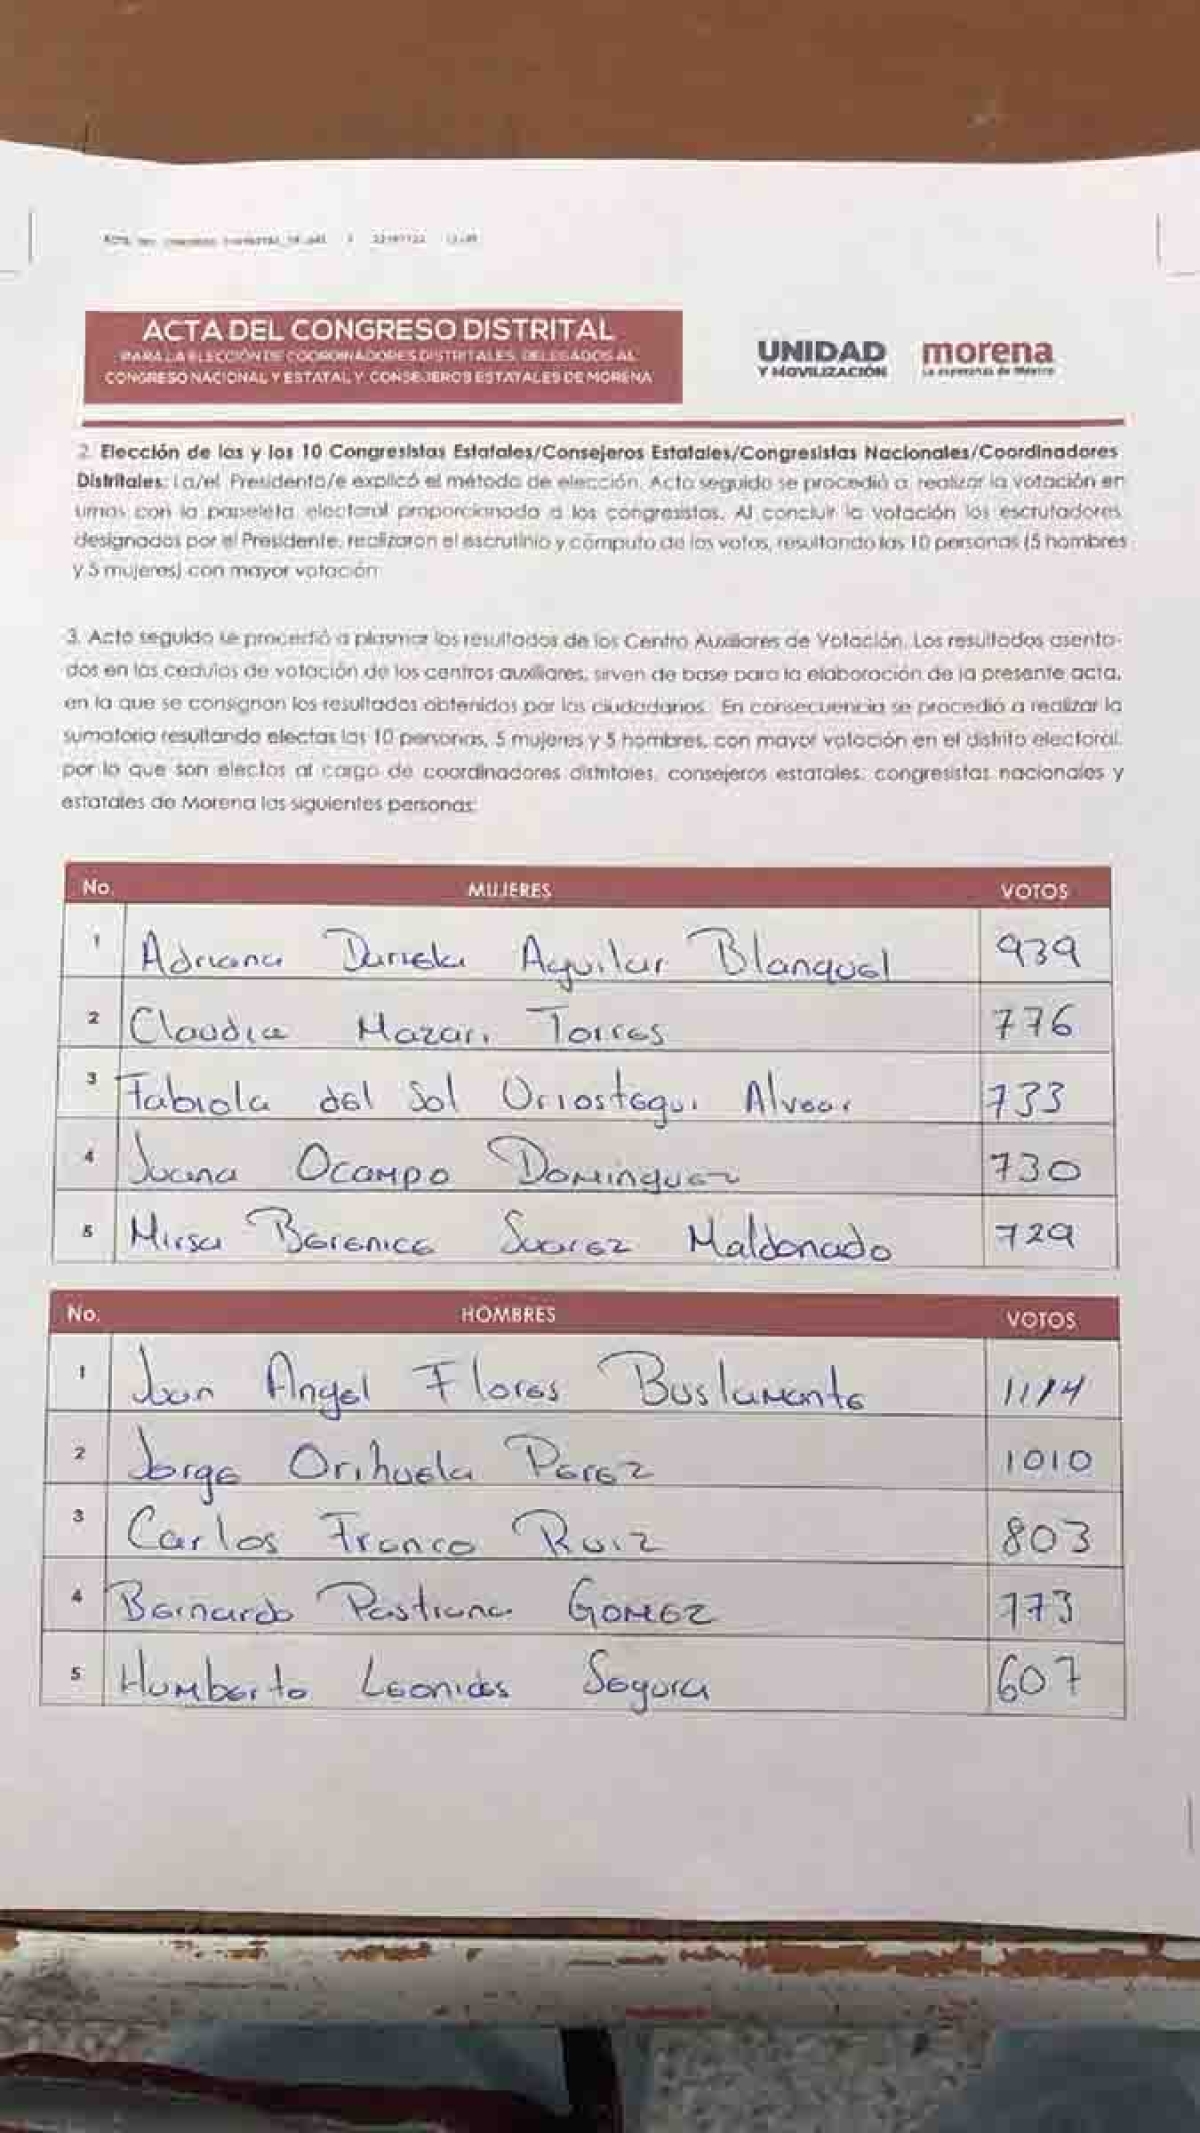 ACTA DEL CONGRESO DISTRITAL
PARA LA ELECCIÓN DE COORDINADORES DISTRITALES, DELEGADOS AL
CONGRESO NACIONAL Y ESTATAL Y CONSEJEROS ESTATALES DE MORENA
UNIDAD
Y MOVILIZACIÓN
morena
La esperanza de México
2. Elección de las y los 10 Congresistas Estatales/Consejeros Estatales/Congresistas Nacionales/Coordinadores
Distritales: La/el Presidenta/e explicó el método de elección. Acto seguido se procedió a realizar la votación en
urnas con la papeleta electoral proporcionada a los congresistas. Al concluir la votación los escrutadores
designados por el Presidente, realizaron el escrutinio y cómputo de los votos, resultando las 10 personas (5 hombres
y 5 mujeres) con mayor votación
3. Acto seguido se procedió a plasmar los resultados de los Centro Auxiliares de Votación. Los resultados asenta-
dos en las cedulas de votación de los centros auxiliares, sirven de base para la elaboración de la presente acta,
en la que se consignan los resultados obtenidos por los ciudadanos. En consecuencia se procedió a realizar la
sumatoria resultando electas las 10 personas, 5 mujeres y 5 hombres, con mayor votación en el distrito electoral,
por lo que son electos al cargo de coordinadores distritales, consejeros estatales, congresistas nacionales y
estatales de Morena las siguientes personas:
No. MUJERES VOTOS
1 Adriana Daniela Aguilar Blanquel 939
2 Claudia Mazari Torres 776
3 Fabiola del Sol Uriostegui Alvear 733
4 Juana Ocampo Dominguez 730
5 Mirsa Berenice Suarez Maldonado 729
No. HOMBRES VOTOS
1 Juan Angel Flores Bustamante 1114
2 Jorge Orihuela Perez 1010
3 Carlos Franco Ruiz 803
4 Bernardo Pastrana Gomez 773
5 Humberto Leonides Segura 607